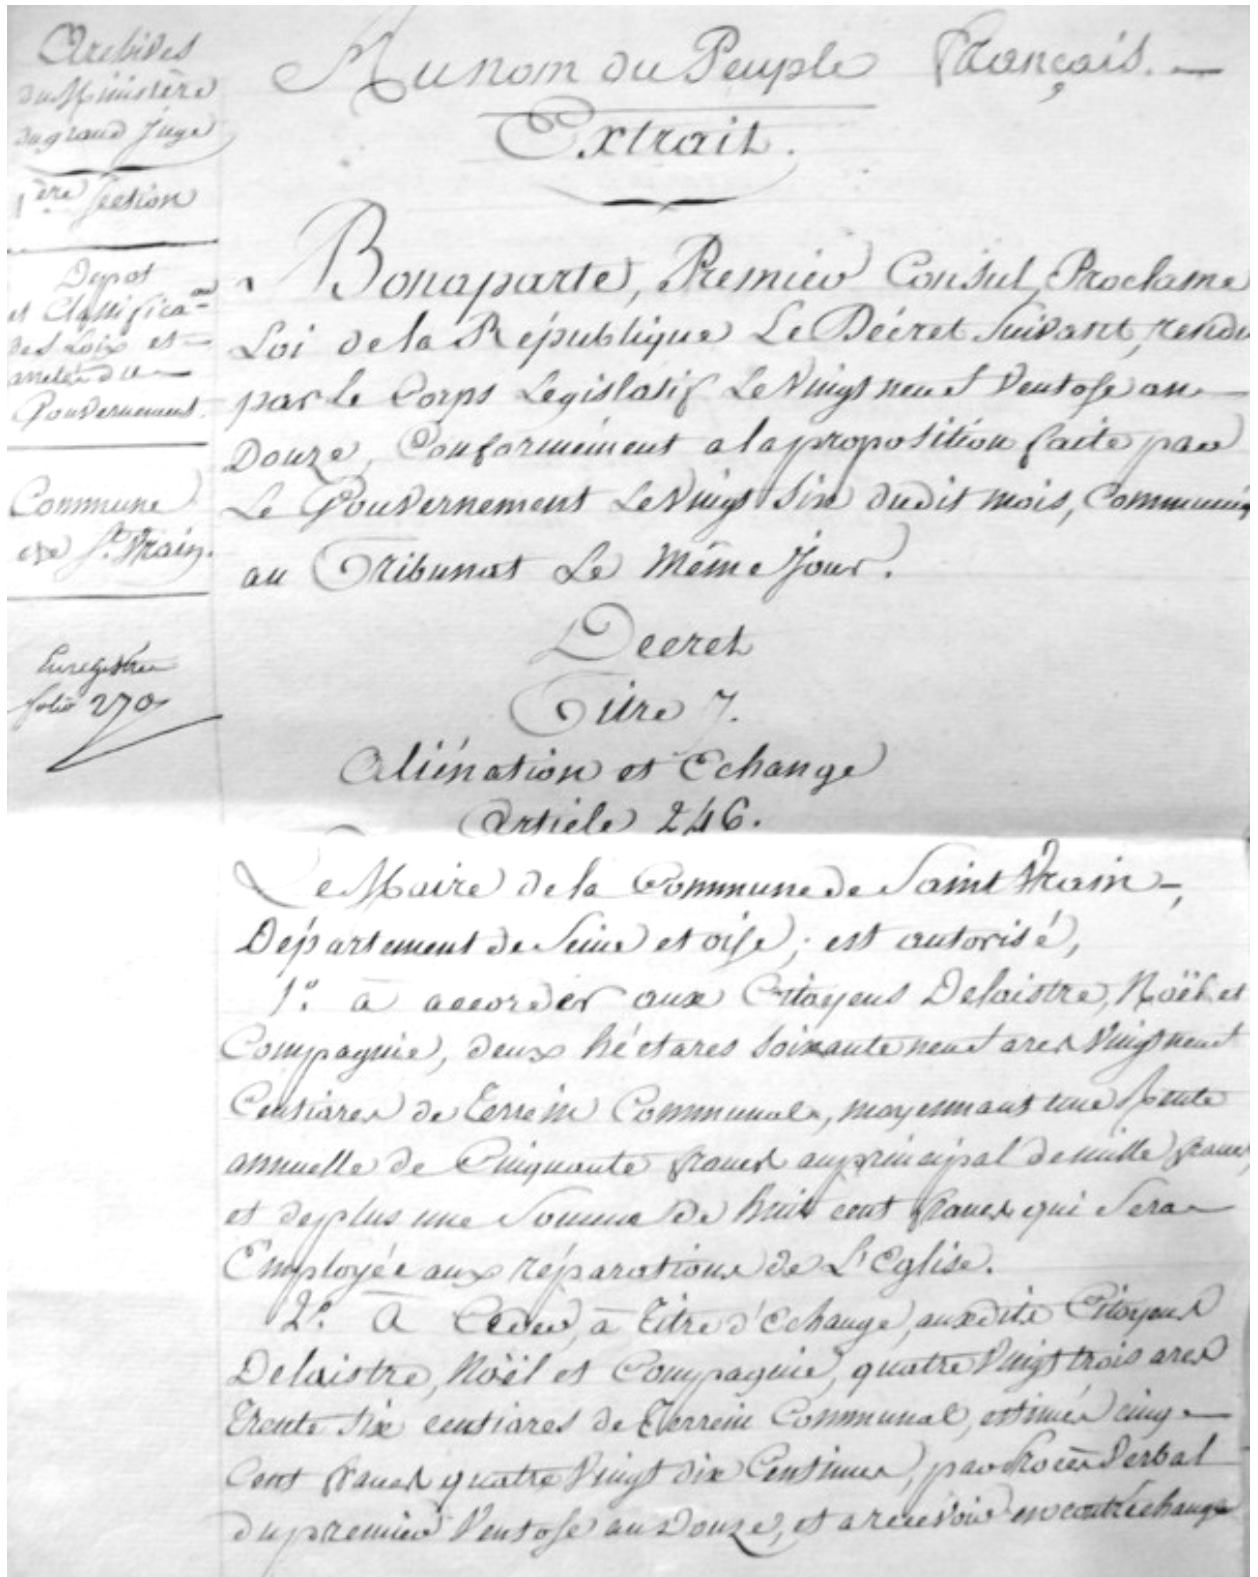 Archives
du Ministère
du grand Juge
1ère Section
Depot
et Classifica=on
des Loix et
arretés du
Gouvernement.
Commune
de St. Vrain.
Enregistré
folio 270
Au nom du Peuple Français.
Extrait.
Bonaparte, Premier Consul, Proclame
Loi de la République Le Décret Suivant, rendu
par le Corps Legislatif Le Vingt neuf Ventose an
Douze, Conformément a la proposition faite par
Le Gouvernement Le Vingt Six dudit mois, Communiqué
au Tribunat Le Même Jour.
Decret
Titre 7.
Aliénation et Echange
Article 246.
Le Maire de la Commune de Saint Vrain,
Département de Seine et oise; est autorisé,
1º. à accorder aux Citoyens Delaistre, Noël et
Compagnie, deux héctares Soixante neuf ares Vingt neuf
Centiares de terrein Communal, moyennant une Rente
annuelle de Cinquante francs au principal de mille francs,
et de plus une Somme de huit cent francs qui Sera
Employée aux réparations de L'Eglise.
2º. A Ceder, à titre d'échange, auxdits Citoyens
Delaistre, Noël et Compagnie, quatre Vingt trois ares
trente Six centiares de Terrein Communal, estimés cinq
Cent francs quatre Vingt dix Centimes, par Procès Verbal
du premier Ventose an Douze, et a recevoir en contréchange